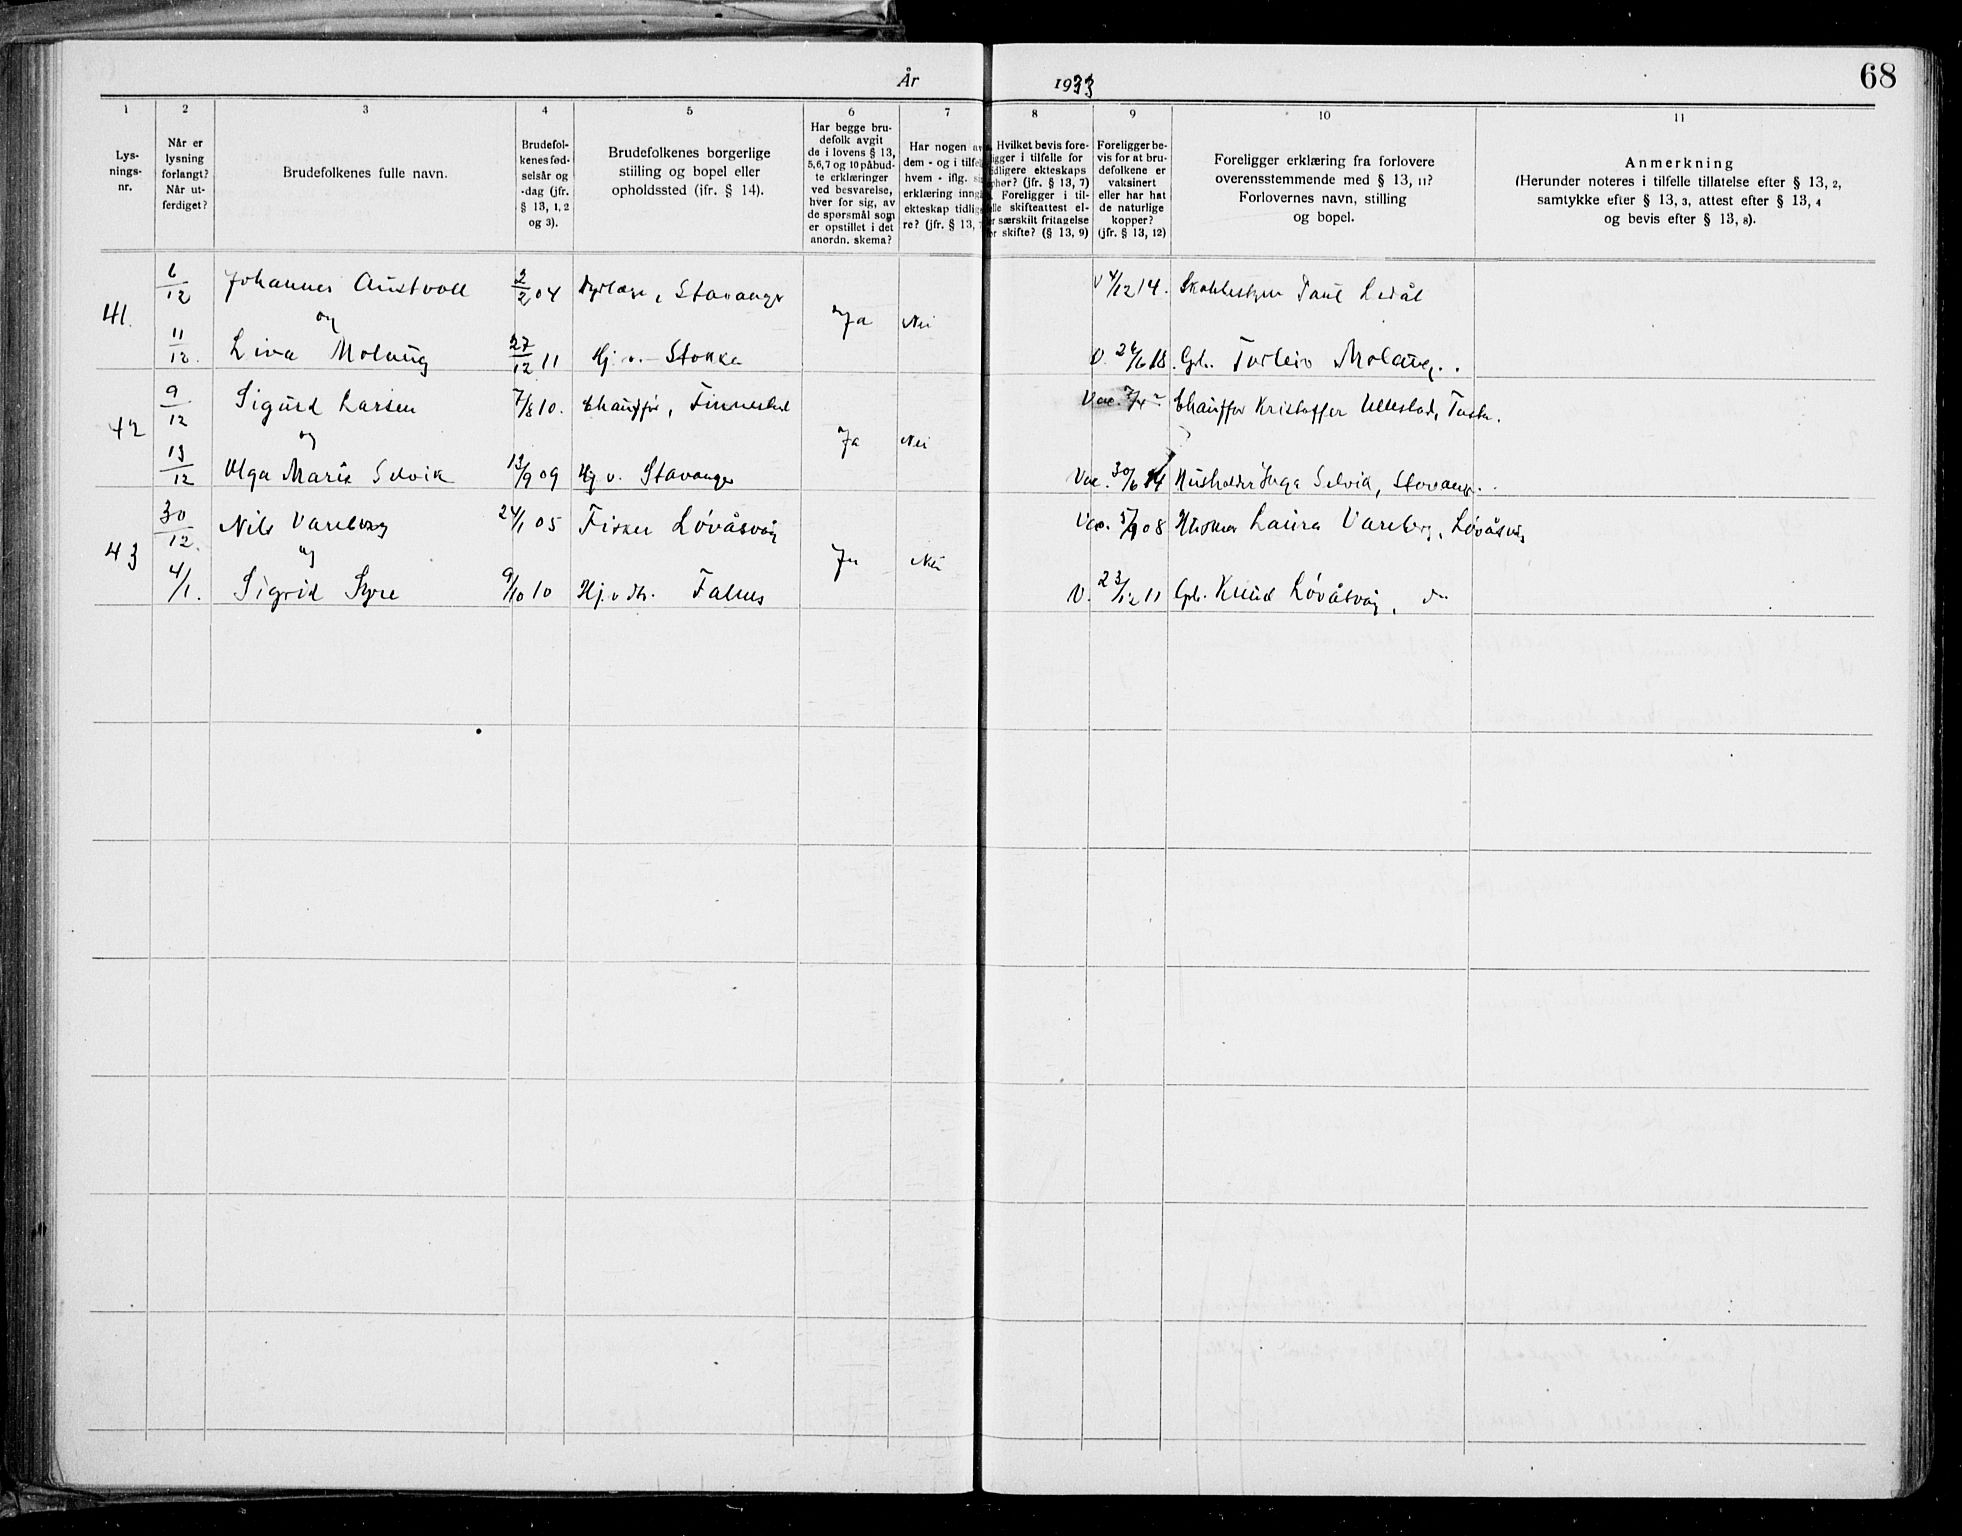 År 1933
68
1 2 3 4 5 6 7 8 9 10 11
Lys-
nings-
nr.
Når er
lysning
forlangt?
Når ut-
ferdiget?
Brudefolkenes fulle navn.
Brudefol-
kenes fød-
selsår og
-dag (jfr.
§ 13, 1, 2
og 3).
Brudefolkenes borgerlige
stilling og bopel eller
opholdssted (jfr. § 14).
Har begge bru-
defolk avgit
de i lovens § 13,
5,6,7 og 10 påbud-
te erklæringer
ved besvarelse,
hver for sig, av
de spørsmål som
er opstillet i det
anordn. skema?
Har nogen av
dem - og i tilfel
hvem - iflg. si
erklæring inngå
ekteskap tidlige
re? (jfr. § 13,
Hvilket bevis fore-
igger i tilfelle for
idligere ekteskaps
phør? (jfr. § 13, 7)
Foreligger i til-
elle skifteattest el-
r særskilt fritagelse
or skifte? (§ 13, 9)
Foreligger be-
vis for at bru-
defolkene er
vaksinert
eller har hat
de naturlige
kopper?
(jfr. § 13, 12)
Foreligger erklæring fra forlovere
overensstemmende med § 13, 11?
Forlovernes navn, stilling
og bopel.
Anmerkning
(Herunder noteres i tilfelle tillatelse efter § 13, 2,
samtykke efter § 13, 3, attest efter § 13, 4
og bevis efter § 13, 8).
6/12 Johannes Austvoll 2/2 04 Dyrlæge, Stavanger V 4/12 14. Paul Ledål
41. og Ja Nei
11/12. Liva Molaug 27/12 11 Hj. v. Stokka V. 26/6 18. Gbr. Torleiv Molaug.
9/12 Sigurd Larsen 7/8 10. Chauffør, Finnestad Vac. Chauffør Kristoffer Ullestad, Tasta.
42 og Ja Nei
13/12 Olga Marie Selvik 13/9 09 Hj v. Stavanger Vac. 30/6 14 Inga Selvik, Stavanger.
30/12. Nils Vareberg 24/1 05 Fisker Løvåsvåg Vac. 5/9 08 Laura Vareberg, Løvåsvåg
43 og Ja Nei
4/1. Sigrid Syre 9/10 10 Hj. v. Falnes V. 23/12 11 Gbr. Knud Løvåsvåg, do